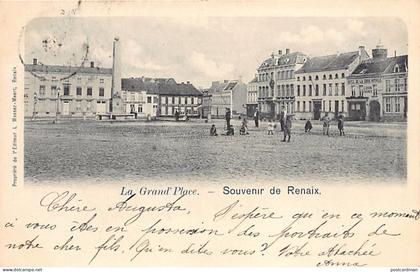 Propriété de l'Editeur L. Messiaen-Maert, Renaix
La Grand'Place. - Souvenir de Renaix.
Chère Augusta, J'espère que en ce moment
vous êtes en possession des portraits de
notre cher fils. Qu'en dites vous? Votre Attachée
Anna
postcardman